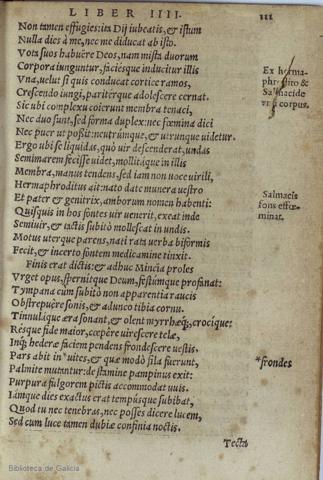 LIBER IIII.
111
Non tamen effugies: ita Dij iubeatis, & istum
Nulla dies à me, nec me diducat ab isto.
Vota suos habuêre Deos, nam mista duorum
Corpora iunguntur, faciésque inducitur illis
Vna, uelut si quis conducat cortice ramos,
Crescendo iungi, pariterque adolescere cernat.
Sic ubi complexu coierunt membra tenaci,
Nec duo sunt, sed forma duplex: nec fœmina dici
Nec puer ut poßit: neutrúmque, & utrunque uidetur.
Ergo ubi se liquidas, quò uir descenderat, undas
Semimarem fecisse uidet, mollitáque in illis
Membra, manus tendens, sed iam non uoce uirili,
Hermaphroditus ait: nato date munera uestro
Et pater & genitrix, amborum nomen habenti:
Quisquis in hos fontes uir uenerit, exeat inde
Semiuir, & tactis subitò mollescat in undis.
Motus uterque parens, nati rata uerba biformis
Fecit, & incerto fontem medicamine tinxit.
Finis erat dictis: & adhuc Mineia proles
Vrget opus, spernítque Deum, festúmque profanat:
Tympana cùm subitò non apparentia raucis
Obstrepuêre sonis, & adunco tibia cornu.
Tinnuláque æra sonant, & olent myrrhæq́;, crocíque:
Résque fide maior, cœpêre uirescere telæ,
Inq́; hederæ faciem pendens frondescere uestis.
Pars abit in *uites, & quæ modò fila fuerunt,
Palmite mutantur: de stamine pampinus exit:
Purpura fulgorem pictis accommodat uuis.
Iámque dies exactus erat tempúsque subibat,
Quod tu nec tenebras, nec posses dicere lucem,
Sed cum luce tamen dubiæ confinia noctis.
Tecta
Ex herma-
phrodito &
Salmacide
vnū corpus.
Salmacis
fons effœ-
minat.
*frondes
Biblioteca de Galicia